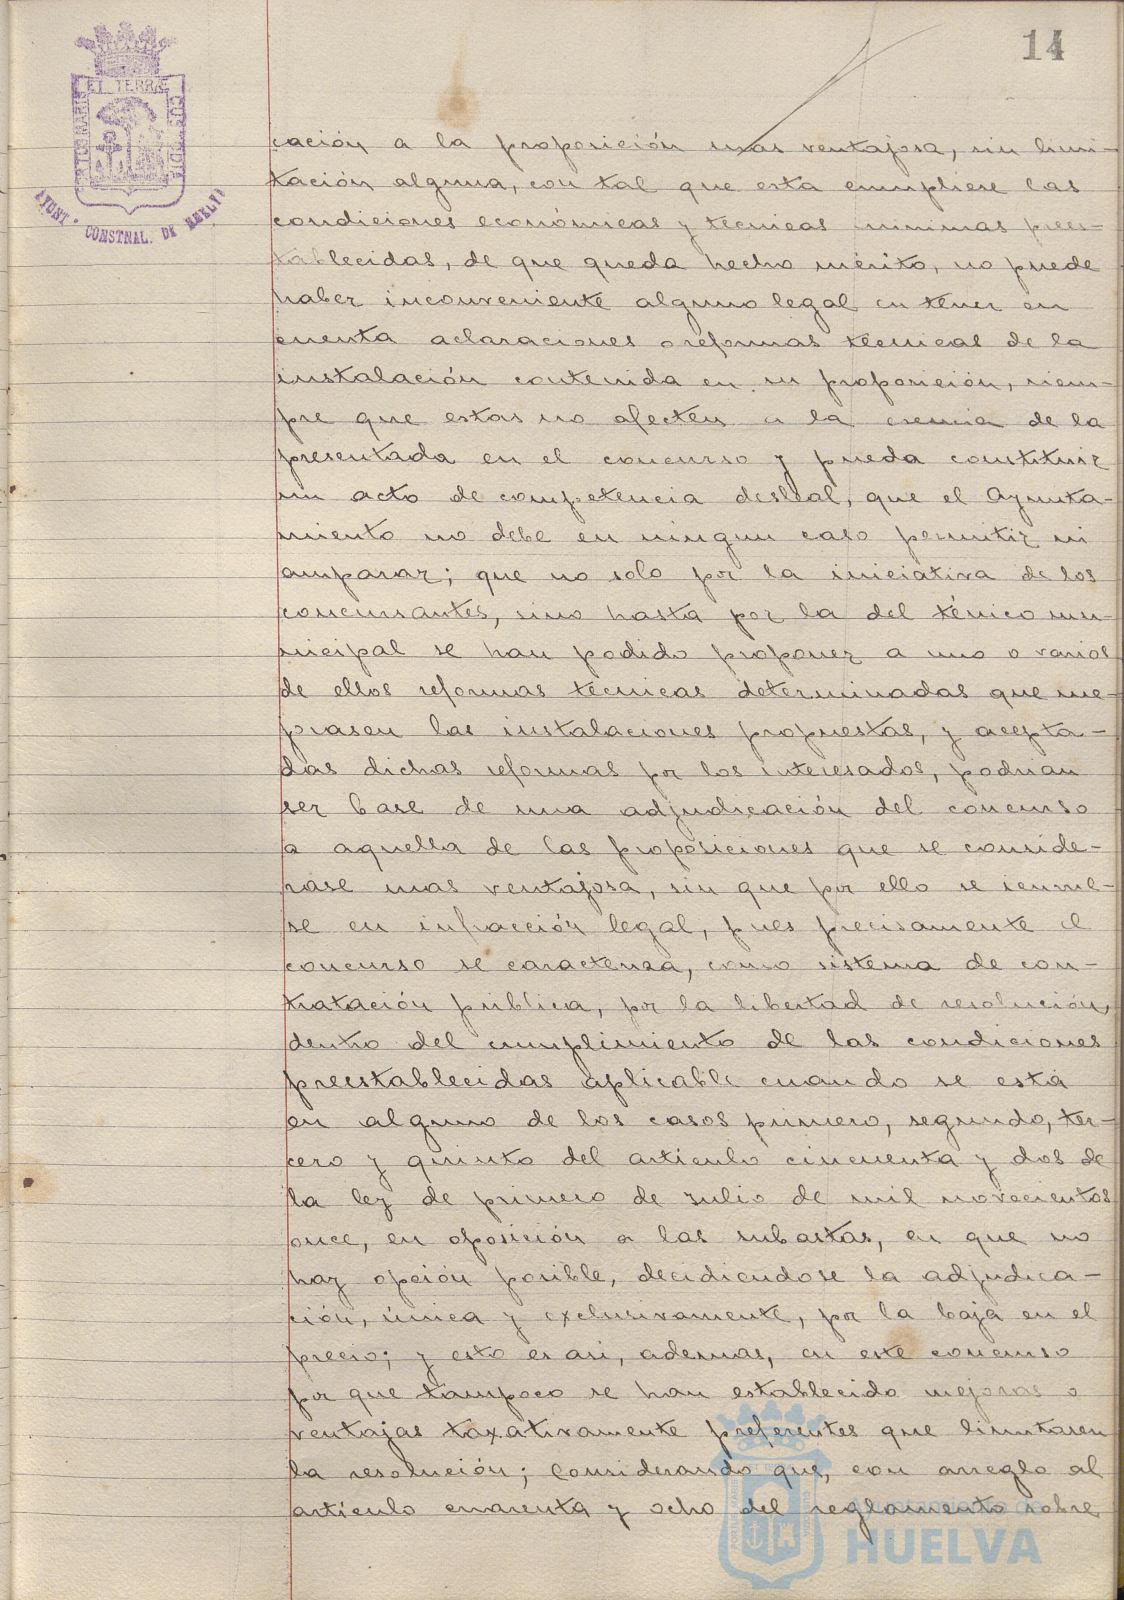 14
PORTUS MARIS ET TERRAE CUSTODIA
AYUNT. CONSTNAL. DE HUELVA
cación a la proposición mas ventajosa, sin limi-
tación alguna, con tal que esta cumpliese las
condiciones económicas y técnicas minimas prees-
tablecidas, de que queda hecho mérito, no puede
haber inconveniente alguno legal en tener en
cuenta aclaraciones o reformas técnicas de la
instalación contenida en su proposición, siem-
pre que estas no afecten a la esencia de la
presentada en el concurso y pueda constituir
un acto de competencia desleal, que el Ayunta-
miento no debe en ningun caso permitir ni
amparar; que no solo por la iniciativa de los
concursantes, sino hasta por la del ténico mu-
nicipal se han podido proponer a uno o varios
de ellos reformas técnicas determinadas que me-
jorasen las instalaciones propuestas, y acepta-
das dichas reformas por los interesados, podrian
ser base de una adjudicación del concurso
a aquella de las proposiciones que se conside-
rase mas ventajosa, sin que por ello se
se en infracción legal, pues precisamente el
concurso se caracteriza, como sistema de con-
tratación pública, por la libertad de resolución,
dentro del cumplimiento de las condiciones
preestablecidas aplicable cuando se está
en alguno de los casos primero, segundo, ter-
cero y quinto del articulo cincuenta y dos de
la ley de primero de Julio de mil novecientos
once, en oposición a las subastas, en que no
hay opción posible, decidiendose la adjudica-
ción, única y exclusivamente, por la baja en el
precio; y esto es asi, ademas, en este concurso
por que tampoco se han establecido mejoras o
ventajas taxativamente preferentes que limitasen
la resolución; Considerando que, con arreglo al
articulo cuarenta y ocho del reglamento sobre
Ayuntamiento de
HUELVA